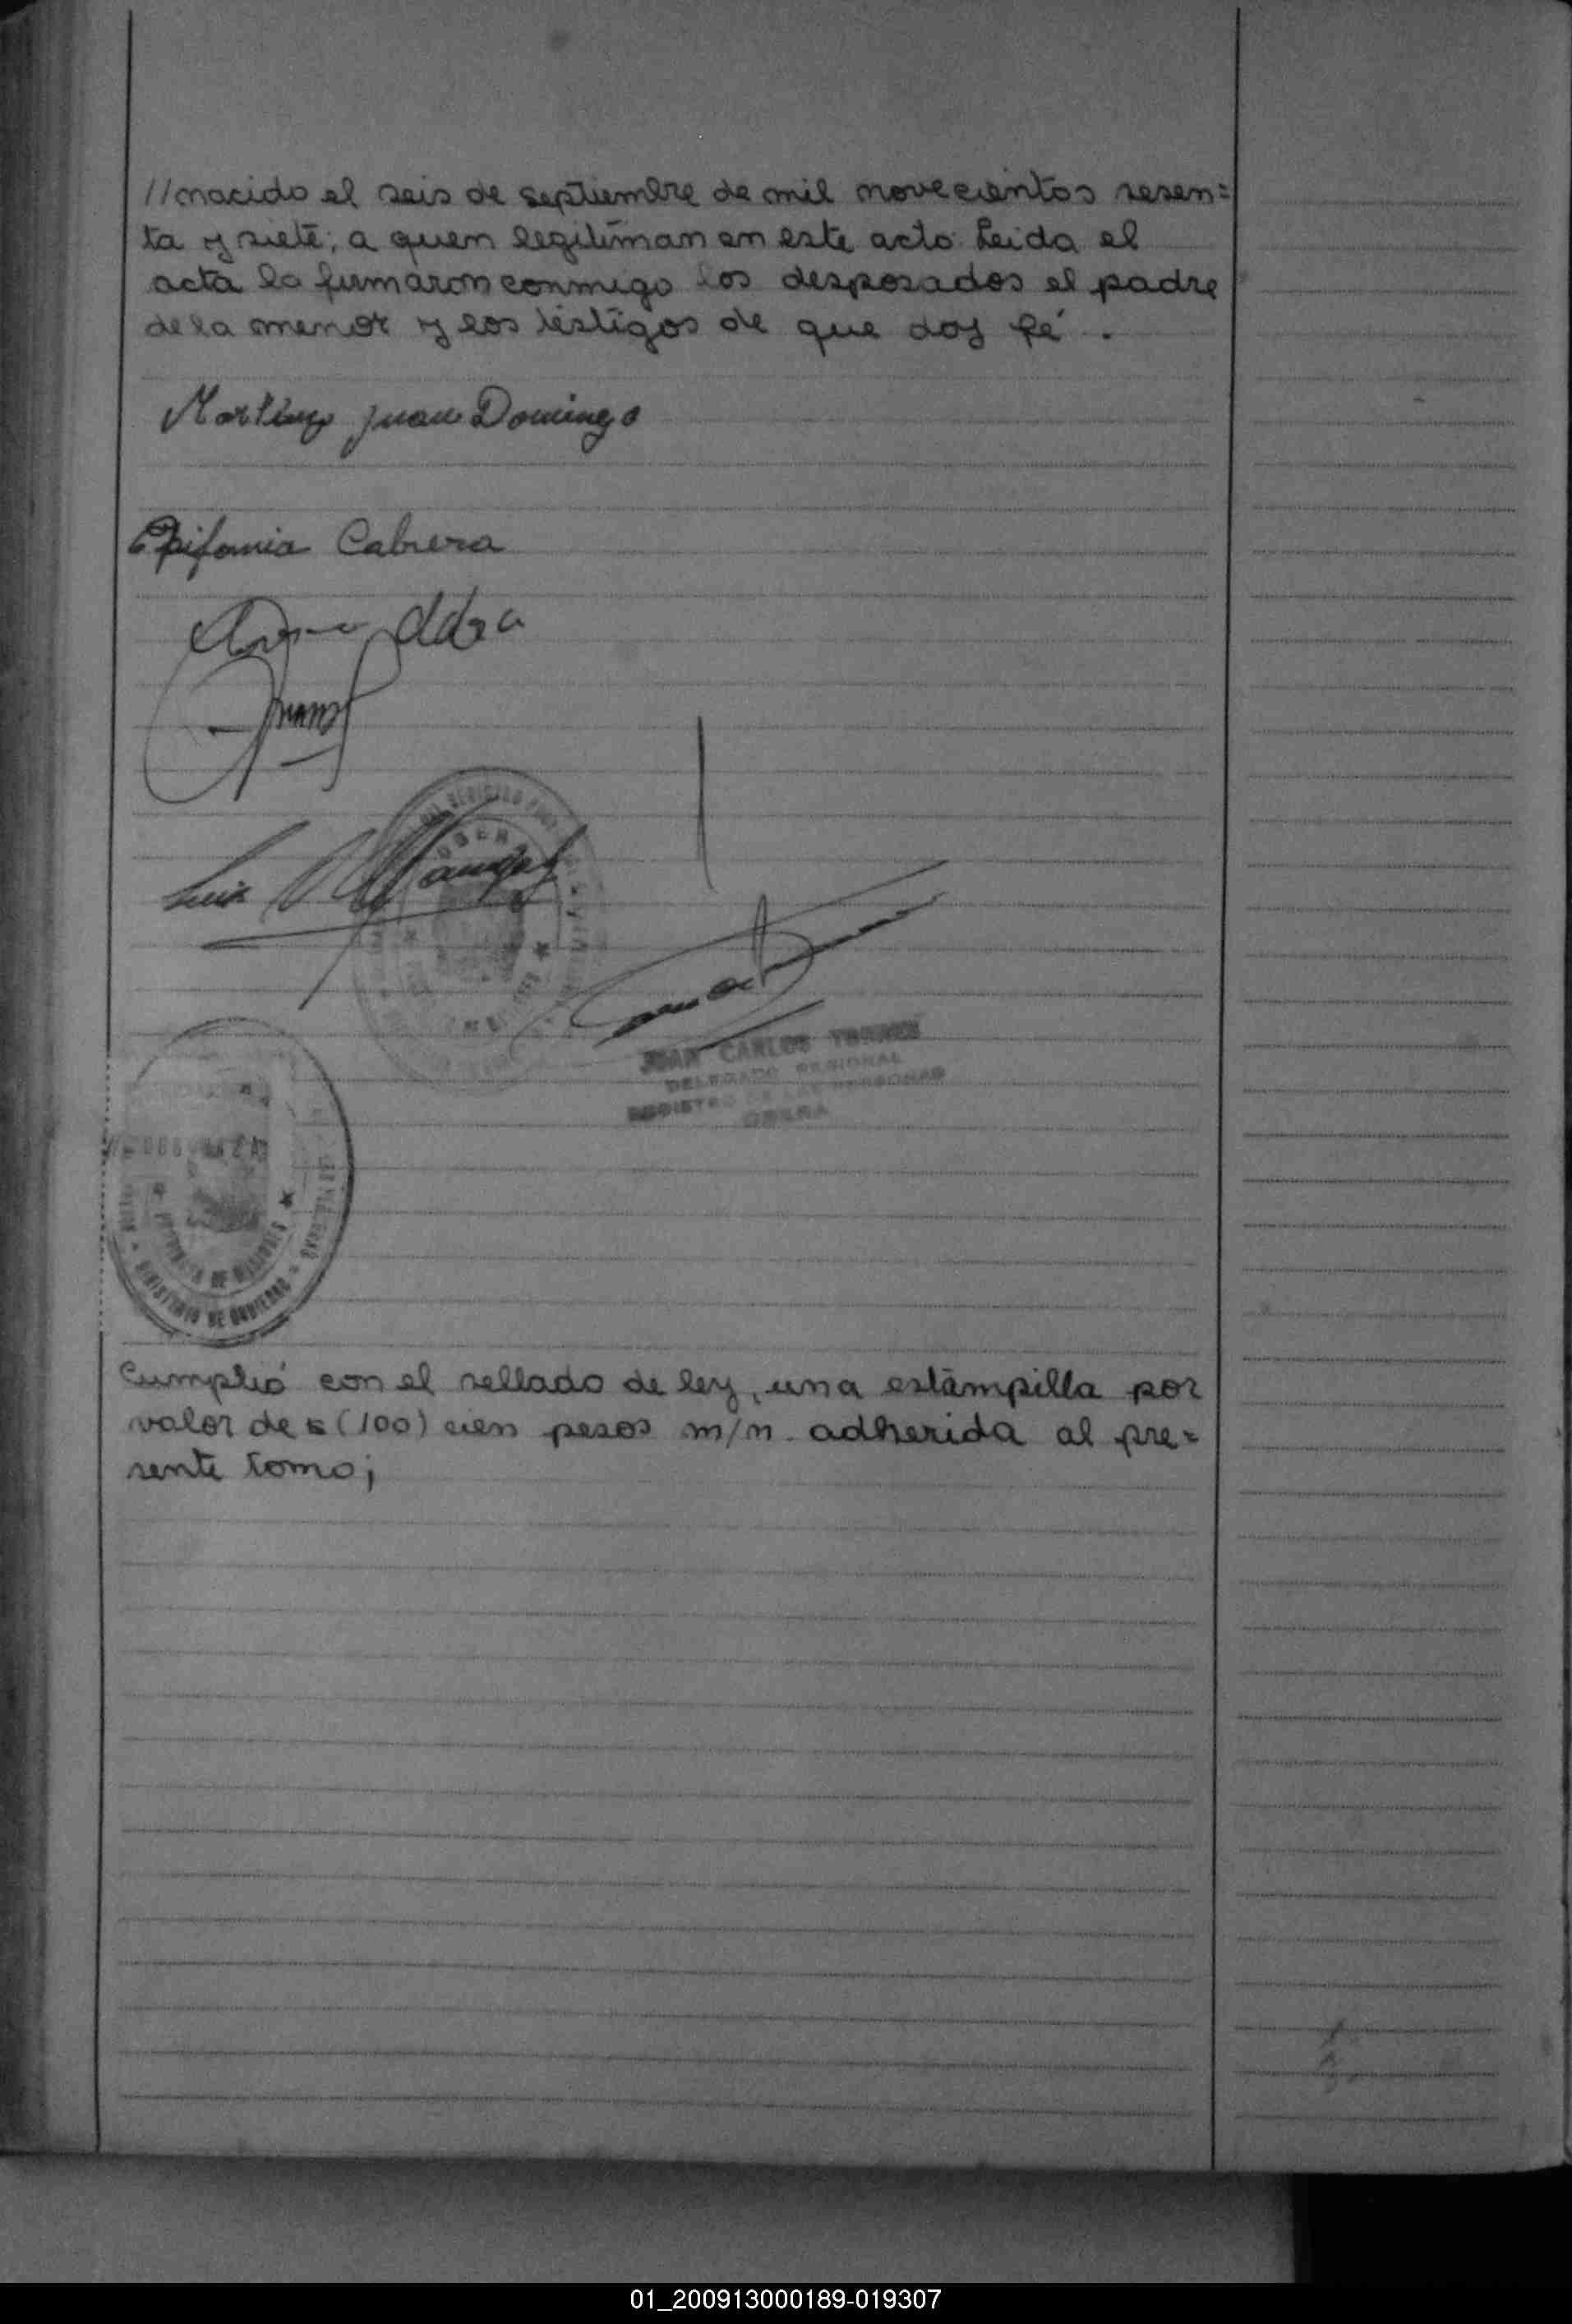 //nacido el seis de septiembre de mil novecientos sesen=
ta y siete; a quien legitiman en este acto. Leida el
acta la firmaron conmigo los desposados el padre
de la menor y los testigos de que doy fé.
Martinez Juan Domingo
Epifania Cabrera
Luis
JUAN CARLOS TORRES
DELEGADO REGIONAL
REGISTRO DE LAS PERSONAS
OBERA
PROVINCIA DE MISIONES
MINISTERIO DE GOBIERNO
Cumplió con el sellado de ley, una estampilla por
valor de $ (100) cien pesos m/n. adherida al pre=
sente tomo;
01_200913000189-019307